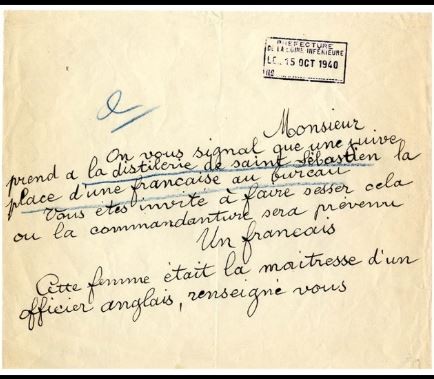 PREFECTURE
DE LA LOIRE INFÉRIEURE
LE. 15 OCT 1940
Monsieur
On vous signal que une juive
prend a la distilerie de saint Sébastien la
place d'une francaise au bureau
Vous êtes invité à faire sesser cela
ou la commandanture sera prévenu
Un francais
Cette femme était la maitresse d'un
officier anglais, renseigné vous